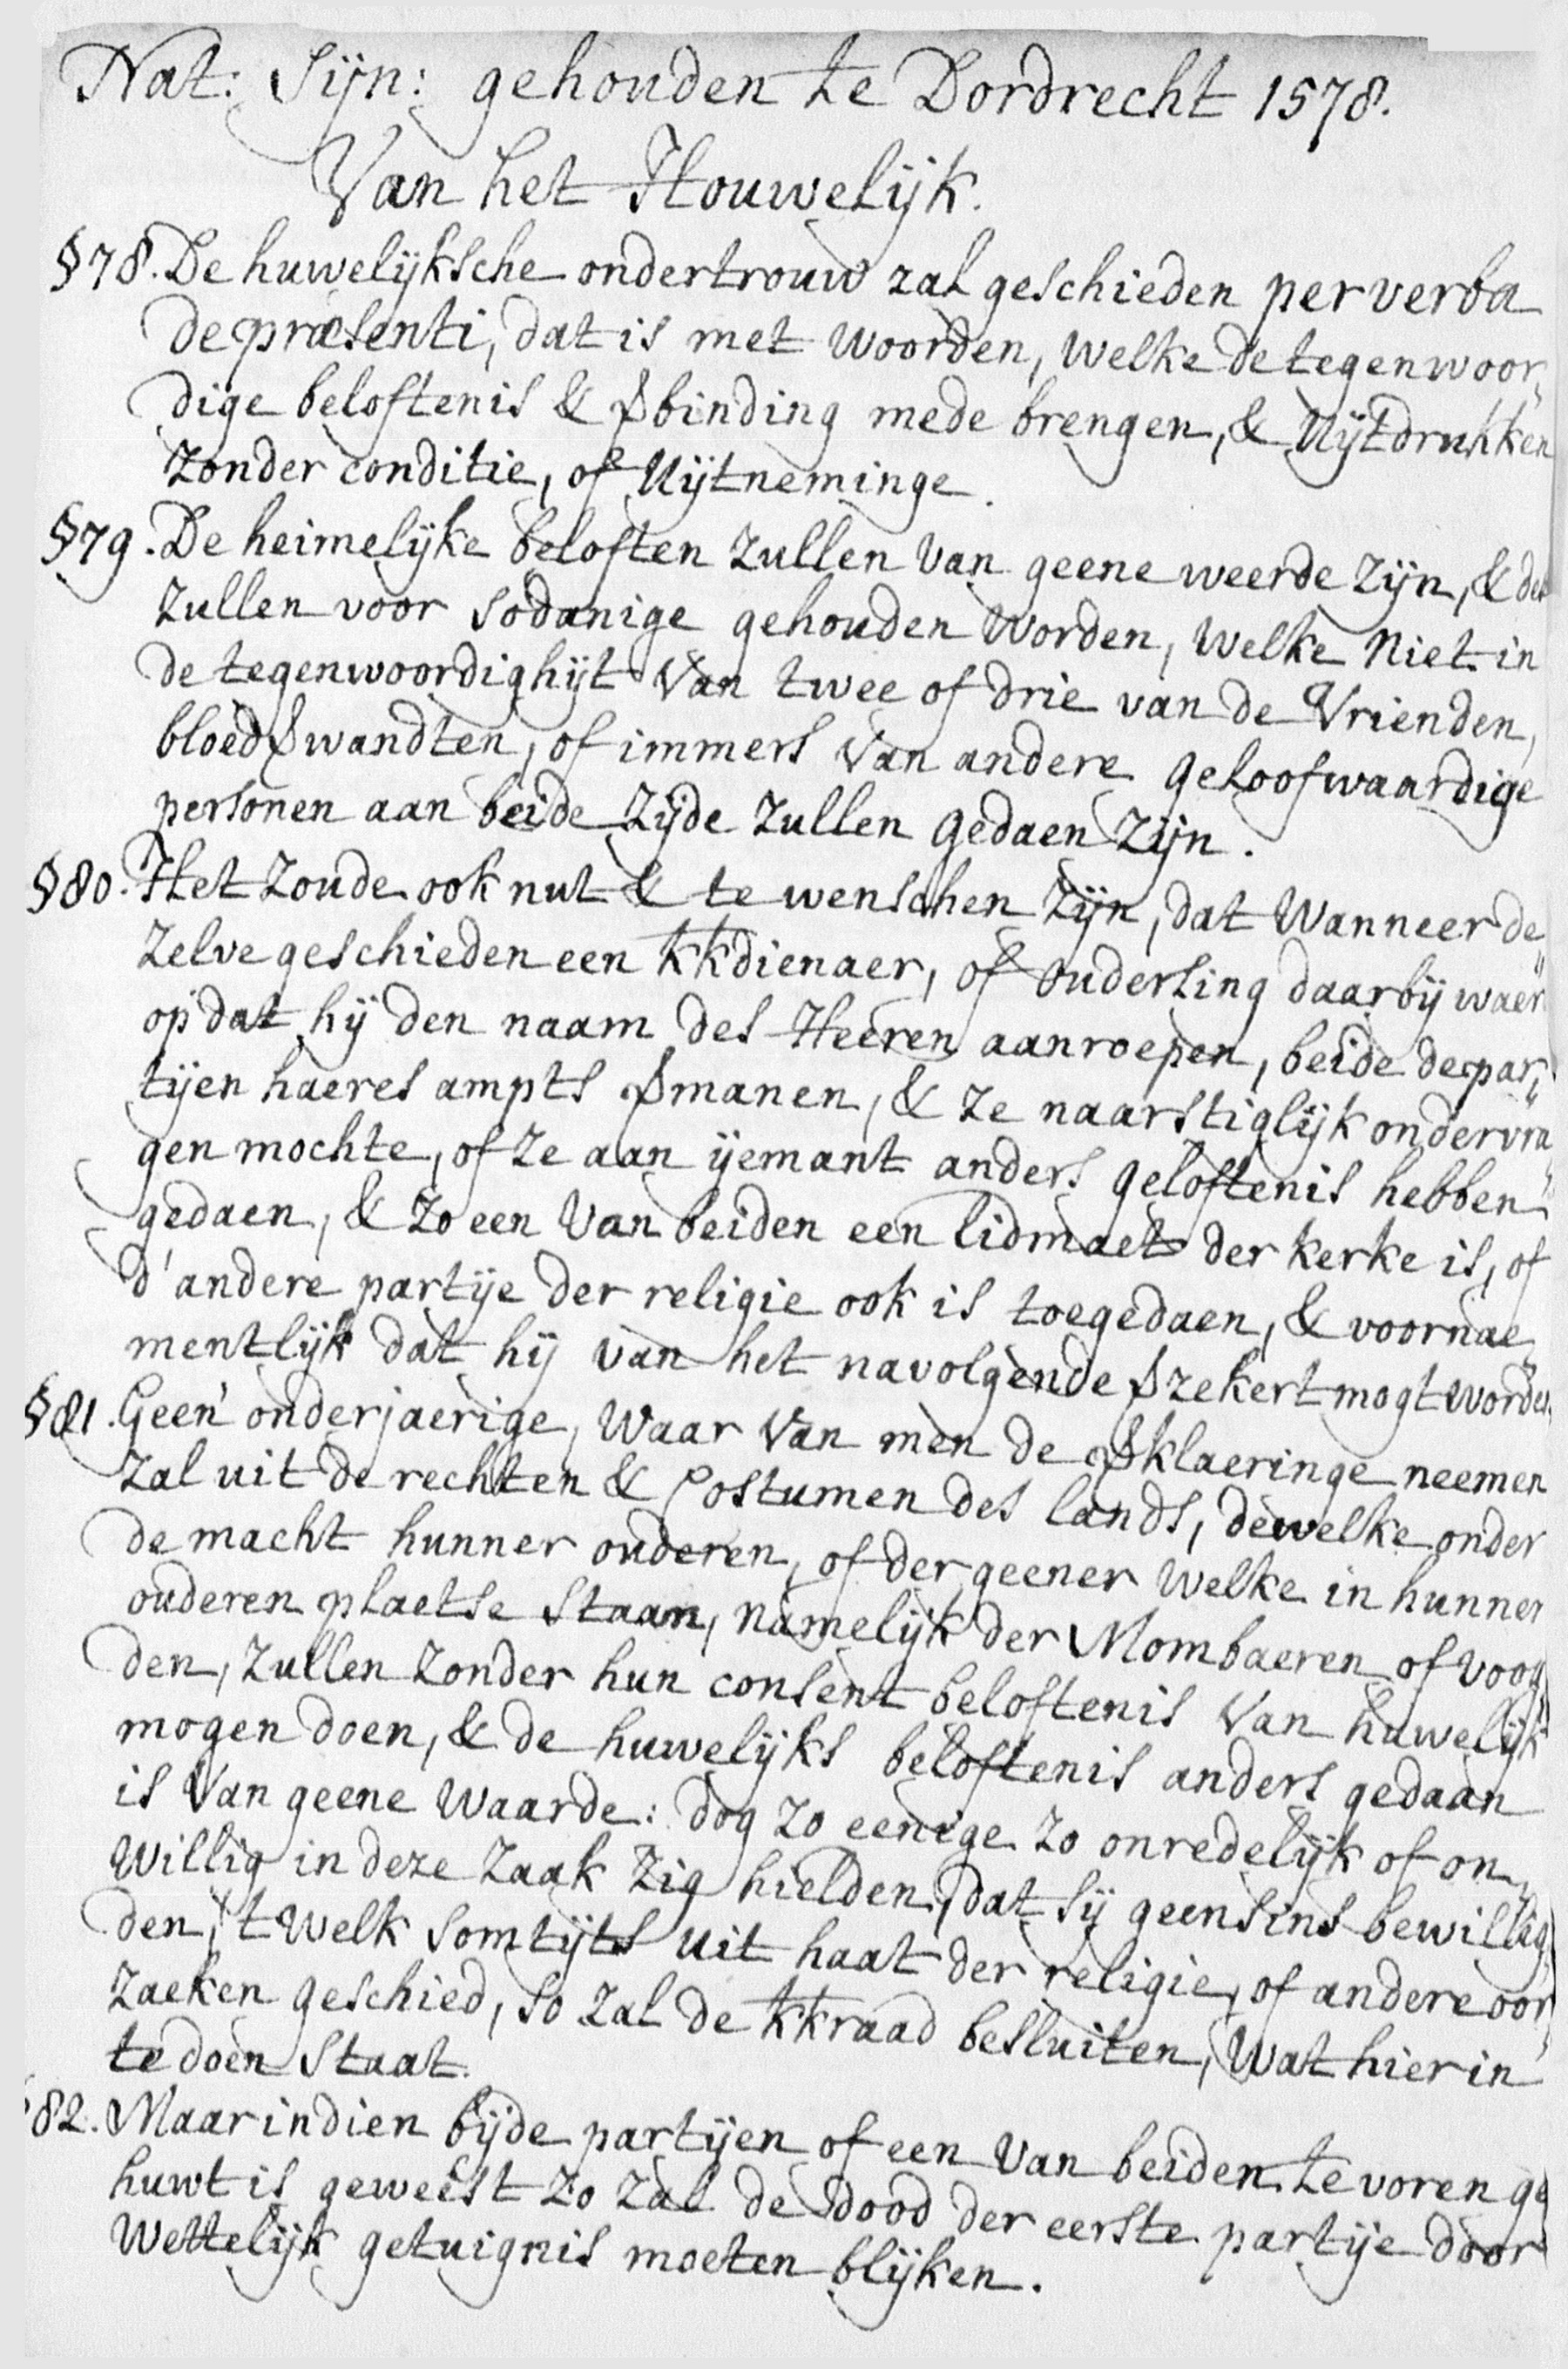 Nat: Sijn: gehouden te Dordrecht 1578.
Van het Houwelijk.
§78. De huwelijksche ondertrouw zal geschieden per verba
de præsenti, dat is met woorden, welke de tegenwoor„
dige beloftenis & ꝟbinding mede brengen, & Uijtdrukken
zonder conditie, of Uijtneminge.
§79. De heimelijke beloften zullen van geene weerde zijn, & de
zullen voor sodanige gehouden worden, welke niet in
de tegenwoordighijt van twee of drie van de Vrienden,
bloedꝟwandten, of immers van andere geloofwaardige
personen aan beide zijde zullen gedaen zijn.
§80. Het zoude ook nut & te wenschen zijn, dat wanneer de„
zelve geschieden een kkdienaer, of ouderling daarbij waer
op dat hij den naam des Heeren aanroepen, beide de par„
tijen haeres ampts ꝟmanen, & ze naarstiglijk ondervra„
gen mochte, of ze aan ijemant anders geloftenis hebben
gedaen, & zo een van beiden een lidmaet der kerke is, of
d'andere partije der religie ook is toegedaen, & voornae„
mentlijk dat hij van het navolgende ꝟzekert mogt worden
§81. Geen onderjaerige, waar van men de ꝟklaeringe neemen
zal uit de rechten & Costumen des lands, dewelke onder
de macht hunner ouderen, of dergeener welke in hunner
ouderen plaetse staan, namelijk der Mombaeren of voog
den, zullen zonder hun consent beloftenis van huwelijk
mogen doen, & de huwelijks beloftenis anders gedaan
is van geene waarde: dog zo eenige zo onredelijk of on„
willig in deze zaak zig hielden, dat sij geensins bewillig
den, 't welk somtijts uit haat der religie, of andere oor
zaeken geschied, so zal de kkraad besluiten, wat hier in
te doen staat.
§82. Maar indien bijde partijen of een van beiden te voren ge
huwt is geweest zo zal de dood der eerste partije door
wettelijk getuignis moeten blijken.